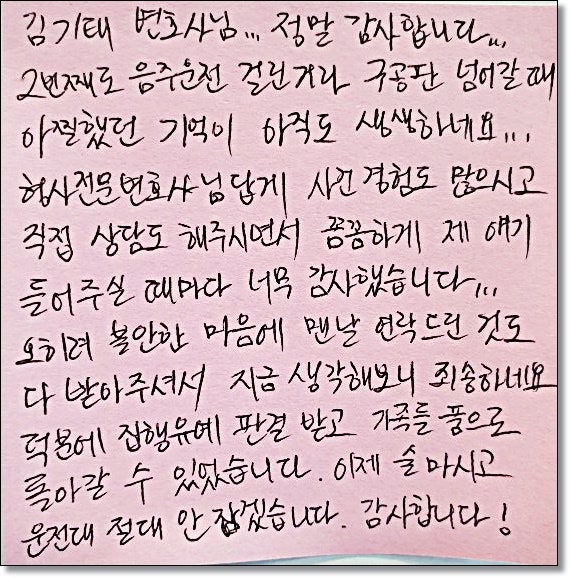 김기태 변호사님... 정말 감사합니다...
2번째로 음주운전 걸린거라 구공판 넘어갈 때
아찔했던 기억이 아직도 생생하네요...
형사전문변호사님답게 사건 경험도 많으시고
직접 상담도 해주시면서 꼼꼼하게 제 얘기
들어주실 때마다 너무 감사했습니다...
오히려 불안한 마음에 맨날 연락드린 것도
다 받아주셔서 지금 생각해보니 죄송하네요
덕분에 집행유예 판결 받고 가족들 품으로
돌아갈 수 있었습니다. 이제 술 마시고
운전대 절대 안 잡겠습니다. 감사합니다!